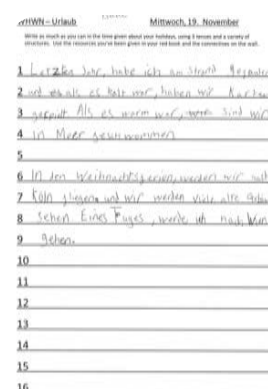 WHWN – Urlaub Mittwoch, 19. November
Write as much as you can in the time given about your holidays, using 3 tenses and a variety of
structures. Use the resources you've been given in your red book and the connectives on the wall.
1 Letztes Jahr, habe ich am Strand
2 und als es kalt war, haben wir Karten
3 gespielt Als es warm war, sind wir
4 in Meer geswwommen
5
6 In den Weihnachtsferien, werden wir
7 Köln fliegen und wir werden viele alte
8 sehen. Eines Tages, werde ich nach Wien
9 gehen.
10
11
12
13
14
15
16